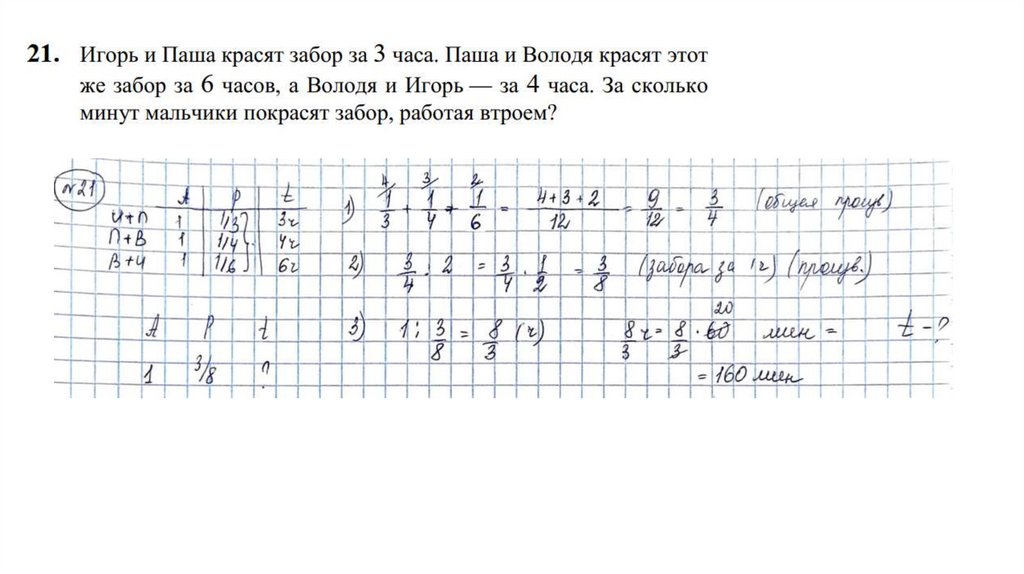 21. Игорь и Паша красят забор за 3 часа. Паша и Володя красят этот
же забор за 6 часов, а Володя и Игорь — за 4 часа. За сколько
минут мальчики покрасят забор, работая втроем?
№21
A P t
И+П 1 1/3 3ч
П+В 1 1/4 4ч
В+И 1 1/6 6ч
1) 4/ 3/ 2/
1/3 + 1/4 + 1/6 = 4+3+2/12 = 9/12 = 3/4 (общая произв)
2) 3/4 : 2 = 3/4 · 1/2 = 3/8 (забора за 1ч) (произв.)
A P t
1 3/8 ?
3) 1 : 3/8 = 8/3 (ч) 8/3 ч = 8/3 · 60 20 мин = t - ?
= 160 мин